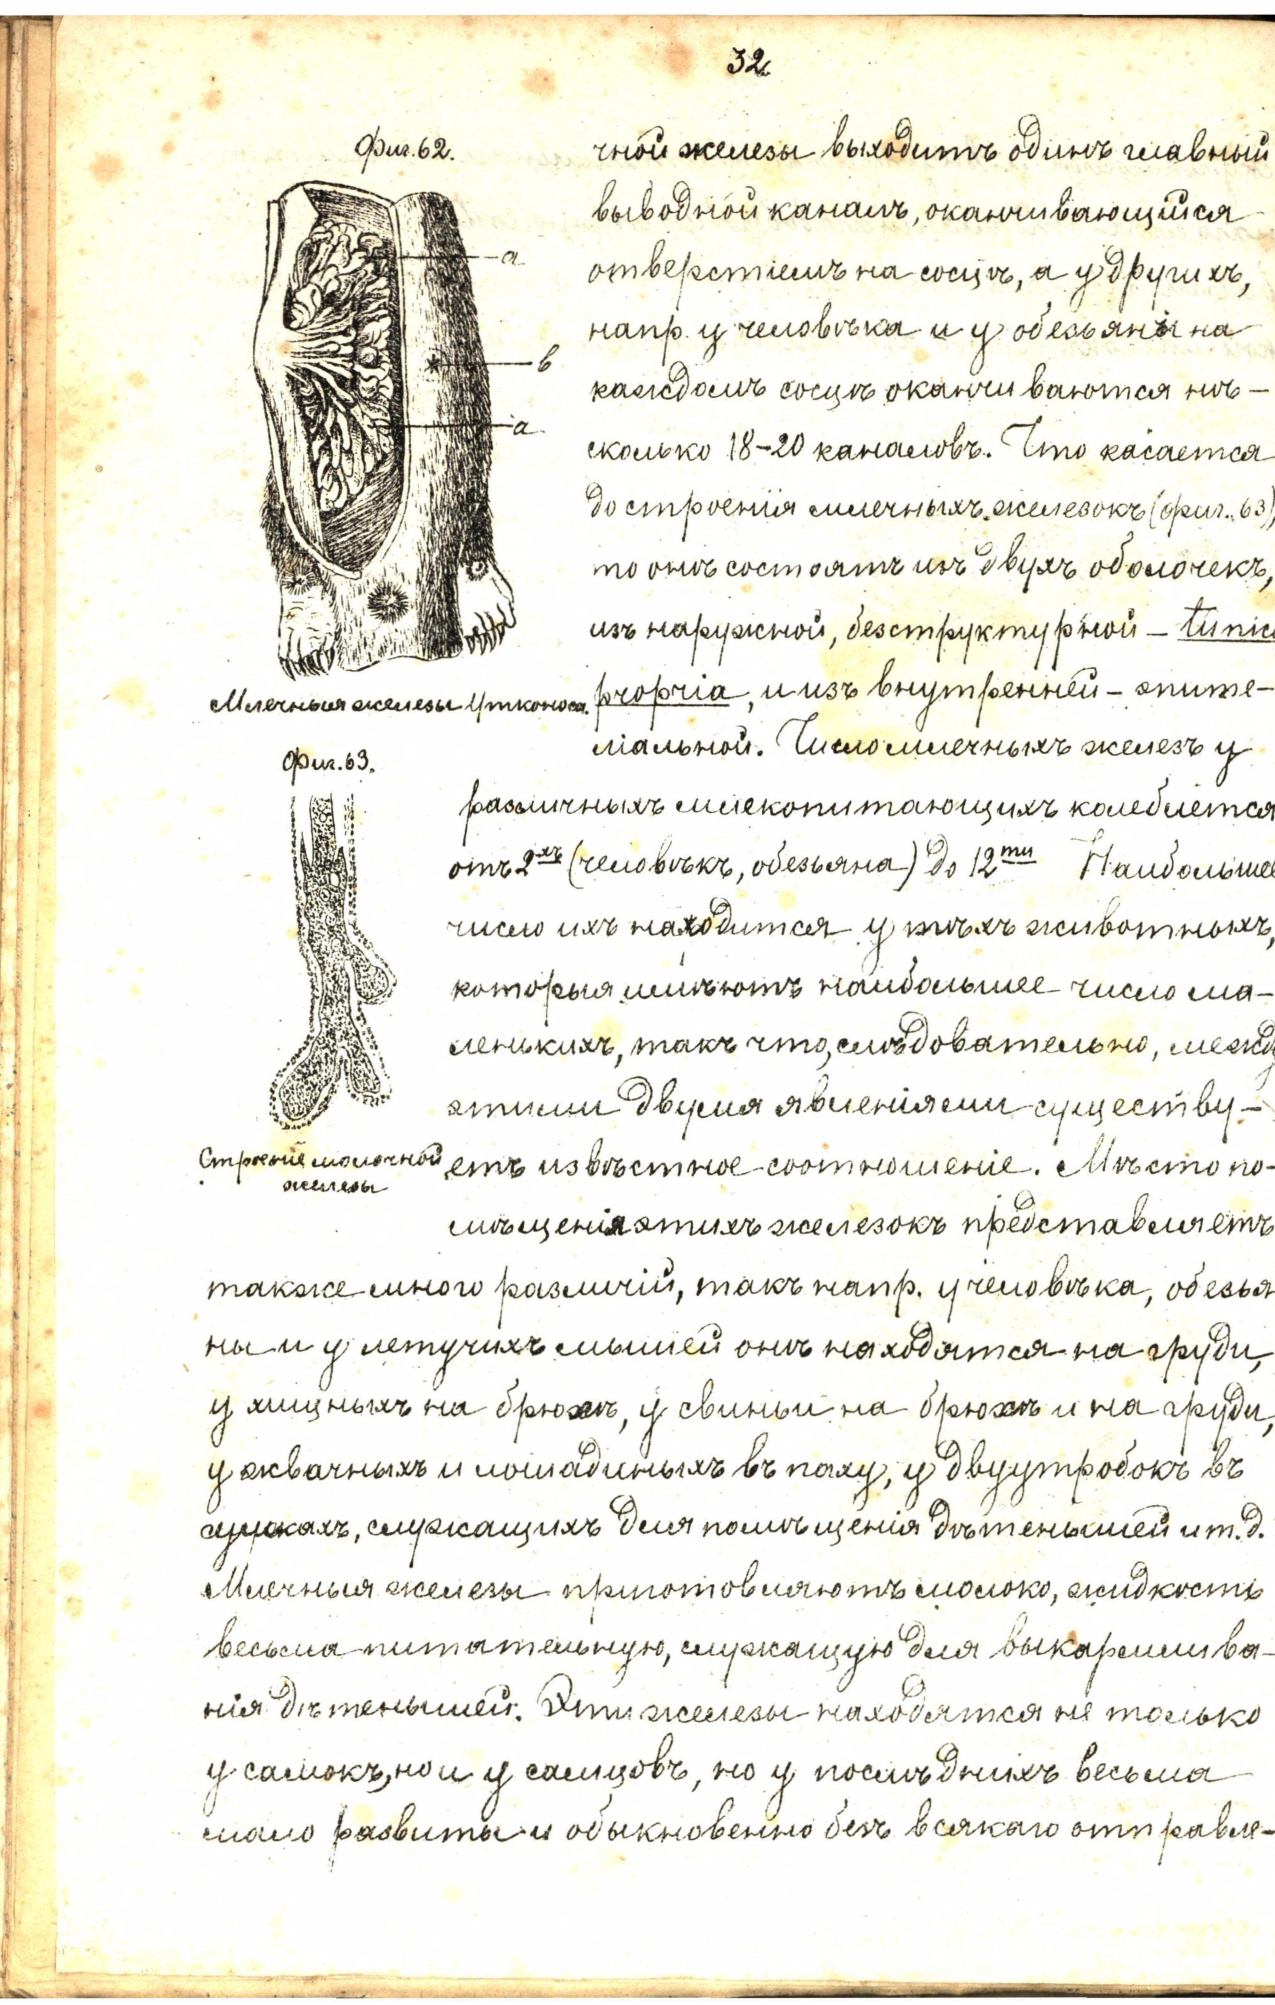 32
Фиг. 62.
a
в
a
Млечныя железы Утконоса.
чной железы выходитъ одинъ главный
выводной каналъ, оканчивающийся
отверстіемъ на сосцѣ, а у другихъ,
напр. у человѣка и у обезьяны на
каждомъ сосцѣ оканчиваются нѣ-
сколько 18-20 каналовъ. Что касается
до строенія млечныхъ железокъ (фиг. 63)
то онѣ состоятъ изъ двухъ оболочекъ,
изъ наружной, безструктурной - tunic
propria, и изъ внутренней - эпите-
ліальной. Число млечныхъ железъ у
Фиг. 63.
Строеніе молочной
железы
различныхъ млекопитающихъ колеблется
отъ 2хъ (человѣкъ, обезьяна) до 12ти Наибольшее
число ихъ находится у тѣхъ животныхъ,
которыя имѣютъ наибольшее число ма-
ленькихъ, такъ что, слѣдовательно, между
этими двумя явленіями существу-
етъ извѣстное соотношеніе. Мѣсто по-
мѣщенія этихъ железокъ представляетъ
также много различій, такъ напр. у человѣка, обезья
ны и у летучихъ мышей онѣ находятся на груди,
у хищныхъ на брюхѣ, у свиньи на брюхѣ и на груди,
у жвачныхъ и лошадиныхъ въ паху, у двуутробокъ въ
сумкахъ, служащихъ для помѣщенія дѣтенышей и т. д.
Млечныя железы приготовляютъ молоко, жидкость
весьма питательную, служащую для выкармлива-
нія дѣтенышей. Эти железы находятся не только
у самокъ, но и у самцовъ, но у послѣднихъ весьма
мало развиты и обыкновенно безъ всякаго отправле-